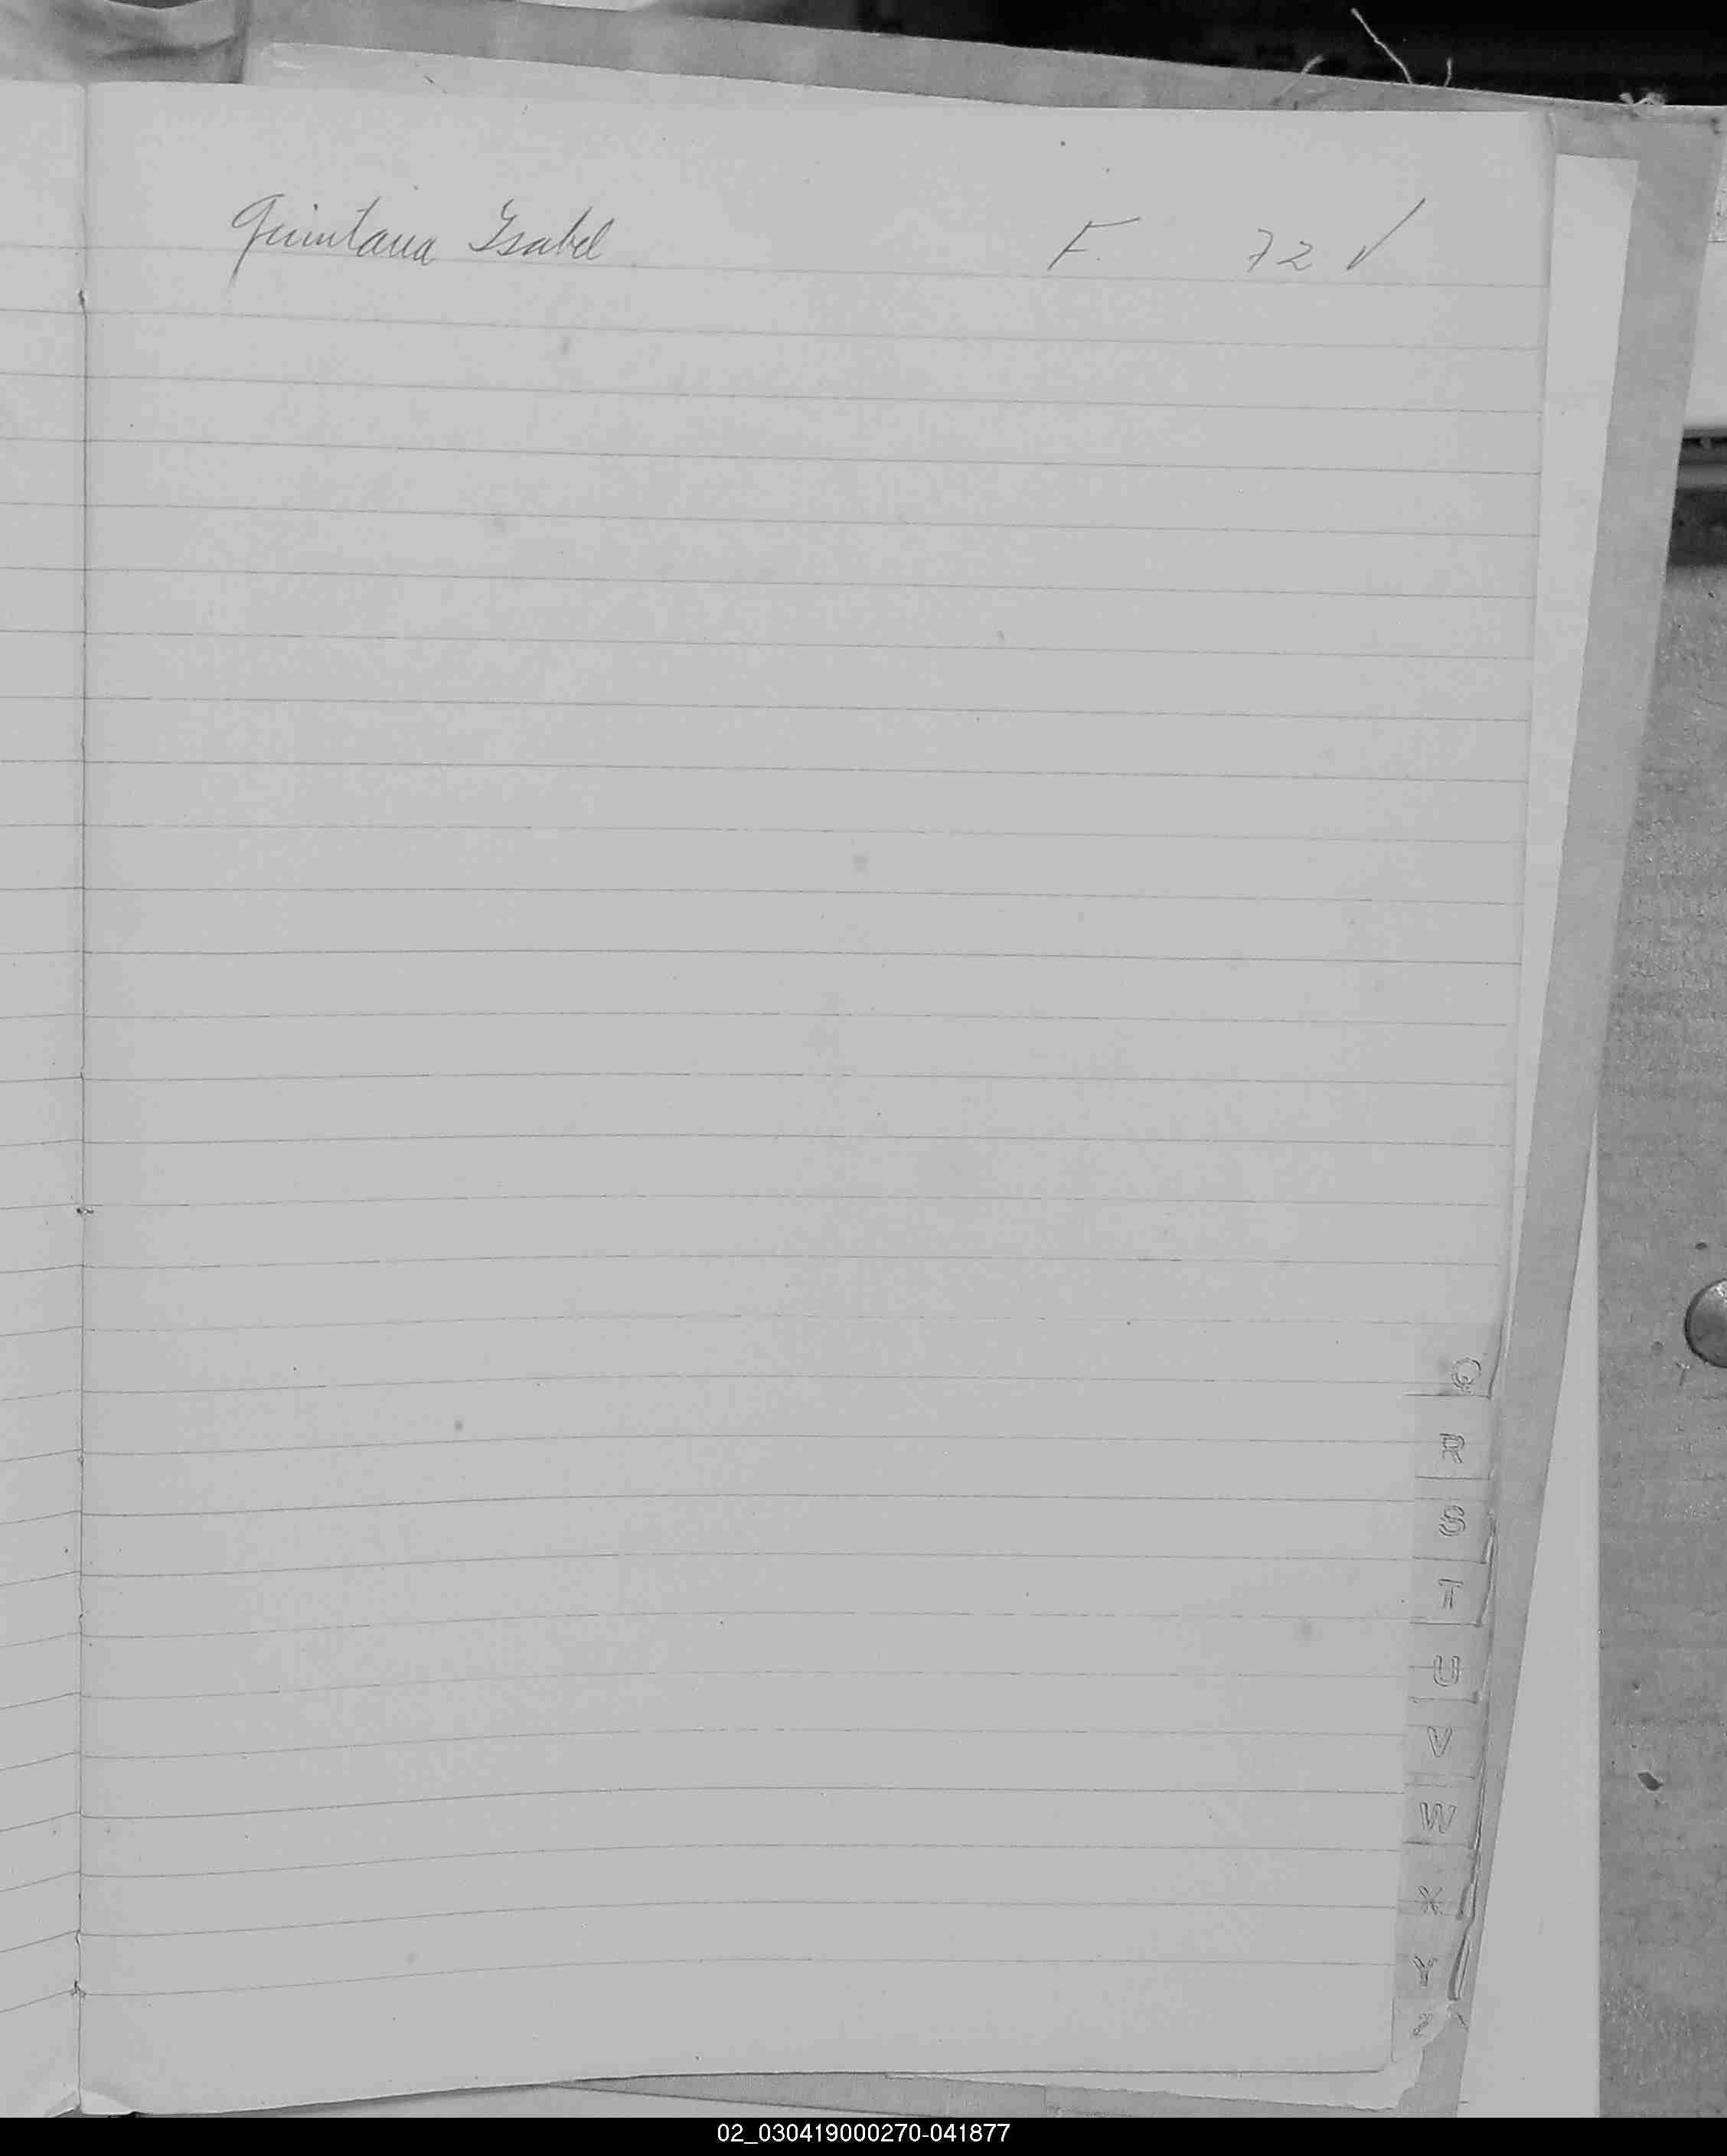 Quintana Isabel F. 72 √
Q
R
S
T
U
V
W
X
Y
Z
02_030419000270-041877